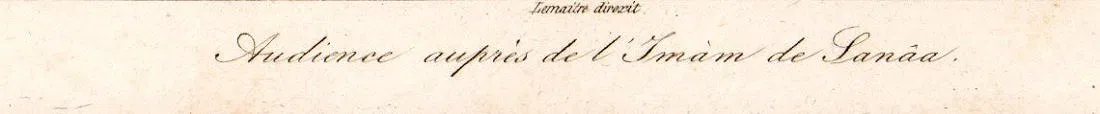 Lemaitre direxit.
Audience auprès de l'Imàm de Sanâa.